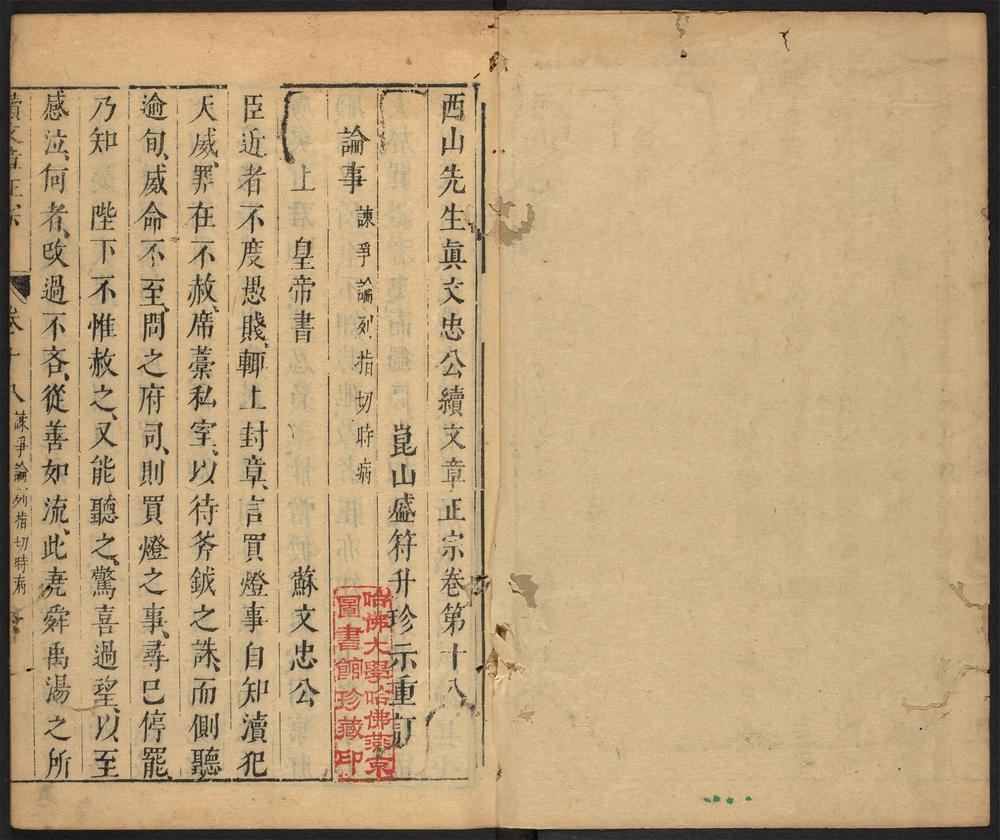 西山先生眞文忠公續文章正宗卷第十八
崑山盛符升珍示重訂
論事 諫爭論列指切時病
上 皇帝書 蘇文忠公
臣近者不度愚賤、輒上封章、言買燈事自知瀆犯
天威、罪在不赦、席藁私室、以待斧鉞之誅、而側聽
逾旬、威命不至、問之府司、則買燈之事、尋已停罷、
乃知 陛下不惟赦之、又能聽之、驚喜過望、以至
感泣、何者、改過不吝、從善如流、此堯舜禹湯之所
續文章正宗 卷十八 諫爭論列指切時病
哈佛大學哈佛燕京
圖書館珍藏印